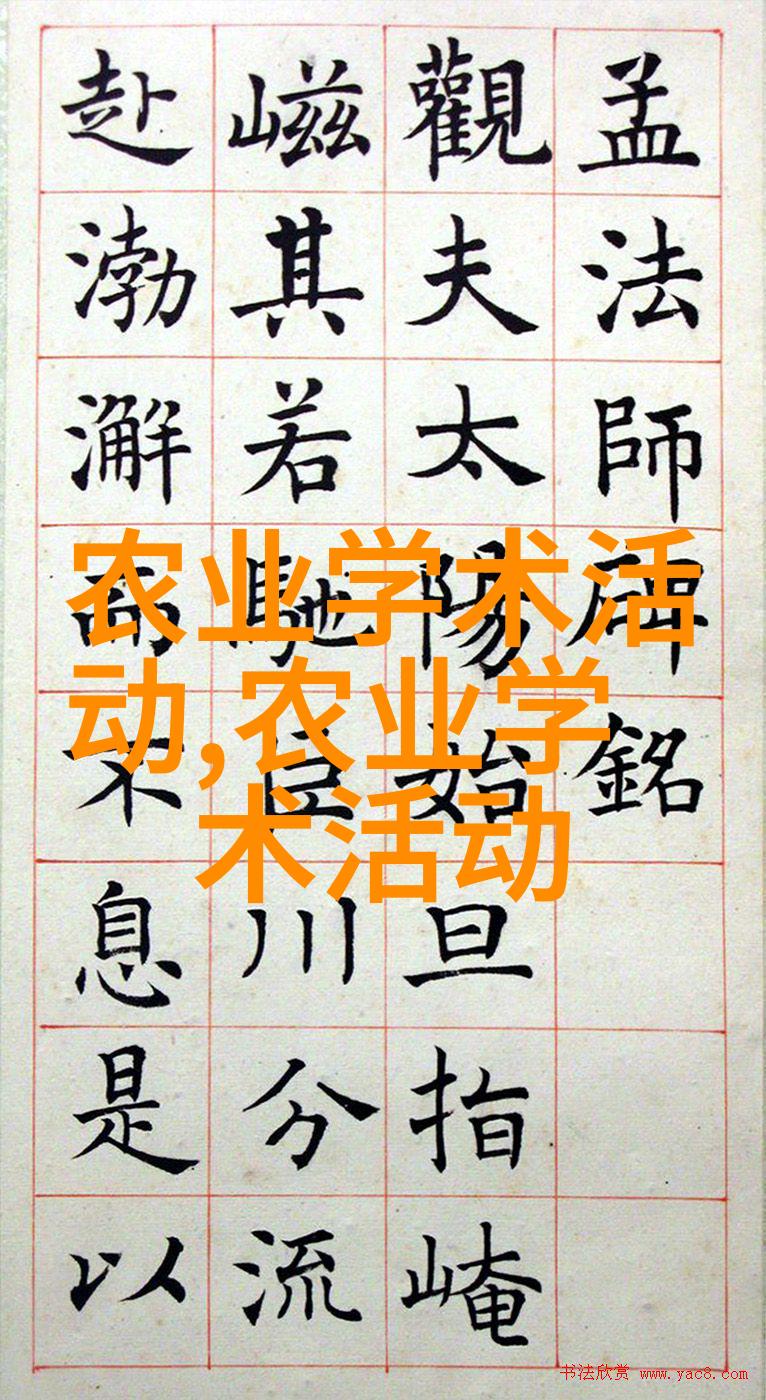 孟法師碑銘
觀夫太陽始旦指崦
嵫其若馳巨川分流
赴渤澥而不息是以
农业学术活
动,农业学
术活动
书法欣赏 www.yac8.com